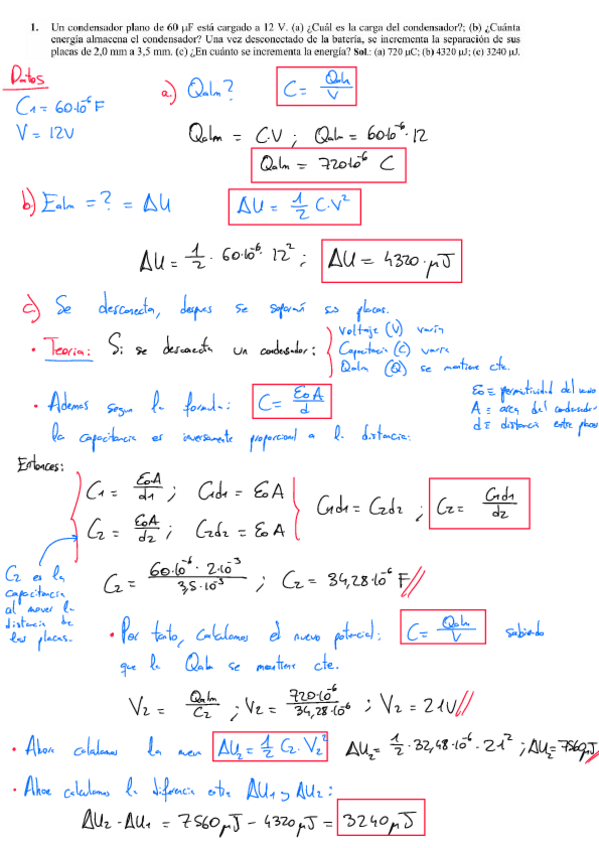 1. Un condensador plano de 60 µF está cargado a 12 V. (a) ¿Cuál es la carga del condensador?; (b) ¿Cuánta
energía almacena el condensador? Una vez desconectado de la batería, se incrementa la separación de sus
placas de 2,0 mm a 3,5 mm. (c) ¿En cuánto se incrementa la energía? Sol.: (a) 720 µC; (b) 4320 µJ; (c) 3240 µJ.
Datos
C1 = 60·10^-6 F
V = 12V
a.) Qalm? C = Qalm/V
Qalm = C·V ; Qalm = 60·10^-6 · 12
Qalm = 720·10^-6 C
b.) Ealm = ? = ΔU ΔU = 1/2 C·V^2
ΔU = 1/2 · 60·10^-6 · 12^2 ; ΔU = 4320·µJ
c.) Se desconecta, despues se separan sus placas.
• Teoria: Si se desconecta un condensador:
Voltaje (V) varía
Capacitancia (C) varía
Qalm (Q) se mantiene cte.
• Ademas segun la formula: C = ε0A/d
la capacitancia es inversamente proporcional a la distancia.
ε0 ≡ permitividad del vacio
A ≡ area del condensador
d ≡ distancia entre placas
Entonces:
C1 = ε0A/d1 ; C1d1 = ε0A
C2 = ε0A/d2 ; C2d2 = ε0A
C1d1 = C2d2 ; C2 = C1d1/d2
C2 es la
capacitancia
al mover la
distancia de
las placas.
C2 = 60·10^-6 · 2·10^-3/3,5·10^-3 ; C2 = 34,28·10^-6 F//
• Por tanto, calculamos el nuevo potencial: C = Qalm/V sabiendo
que la Qalm se mantiene cte.
V2 = Qalm/C2 ; V2 = 720·10^-6/34,28·10^-6 ; V2 = 21V//
• Ahora calculamos la nueva ΔU2 = 1/2 C2·V2^2 ΔU2 = 1/2 · 32,48·10^-6 · 21^2 ; ΔU2 = 7560µJ
• Ahora calculamos la diferencia entre ΔU1 y ΔU2:
ΔU2 - ΔU1 = 7560µJ - 4320µJ = 3240µJ